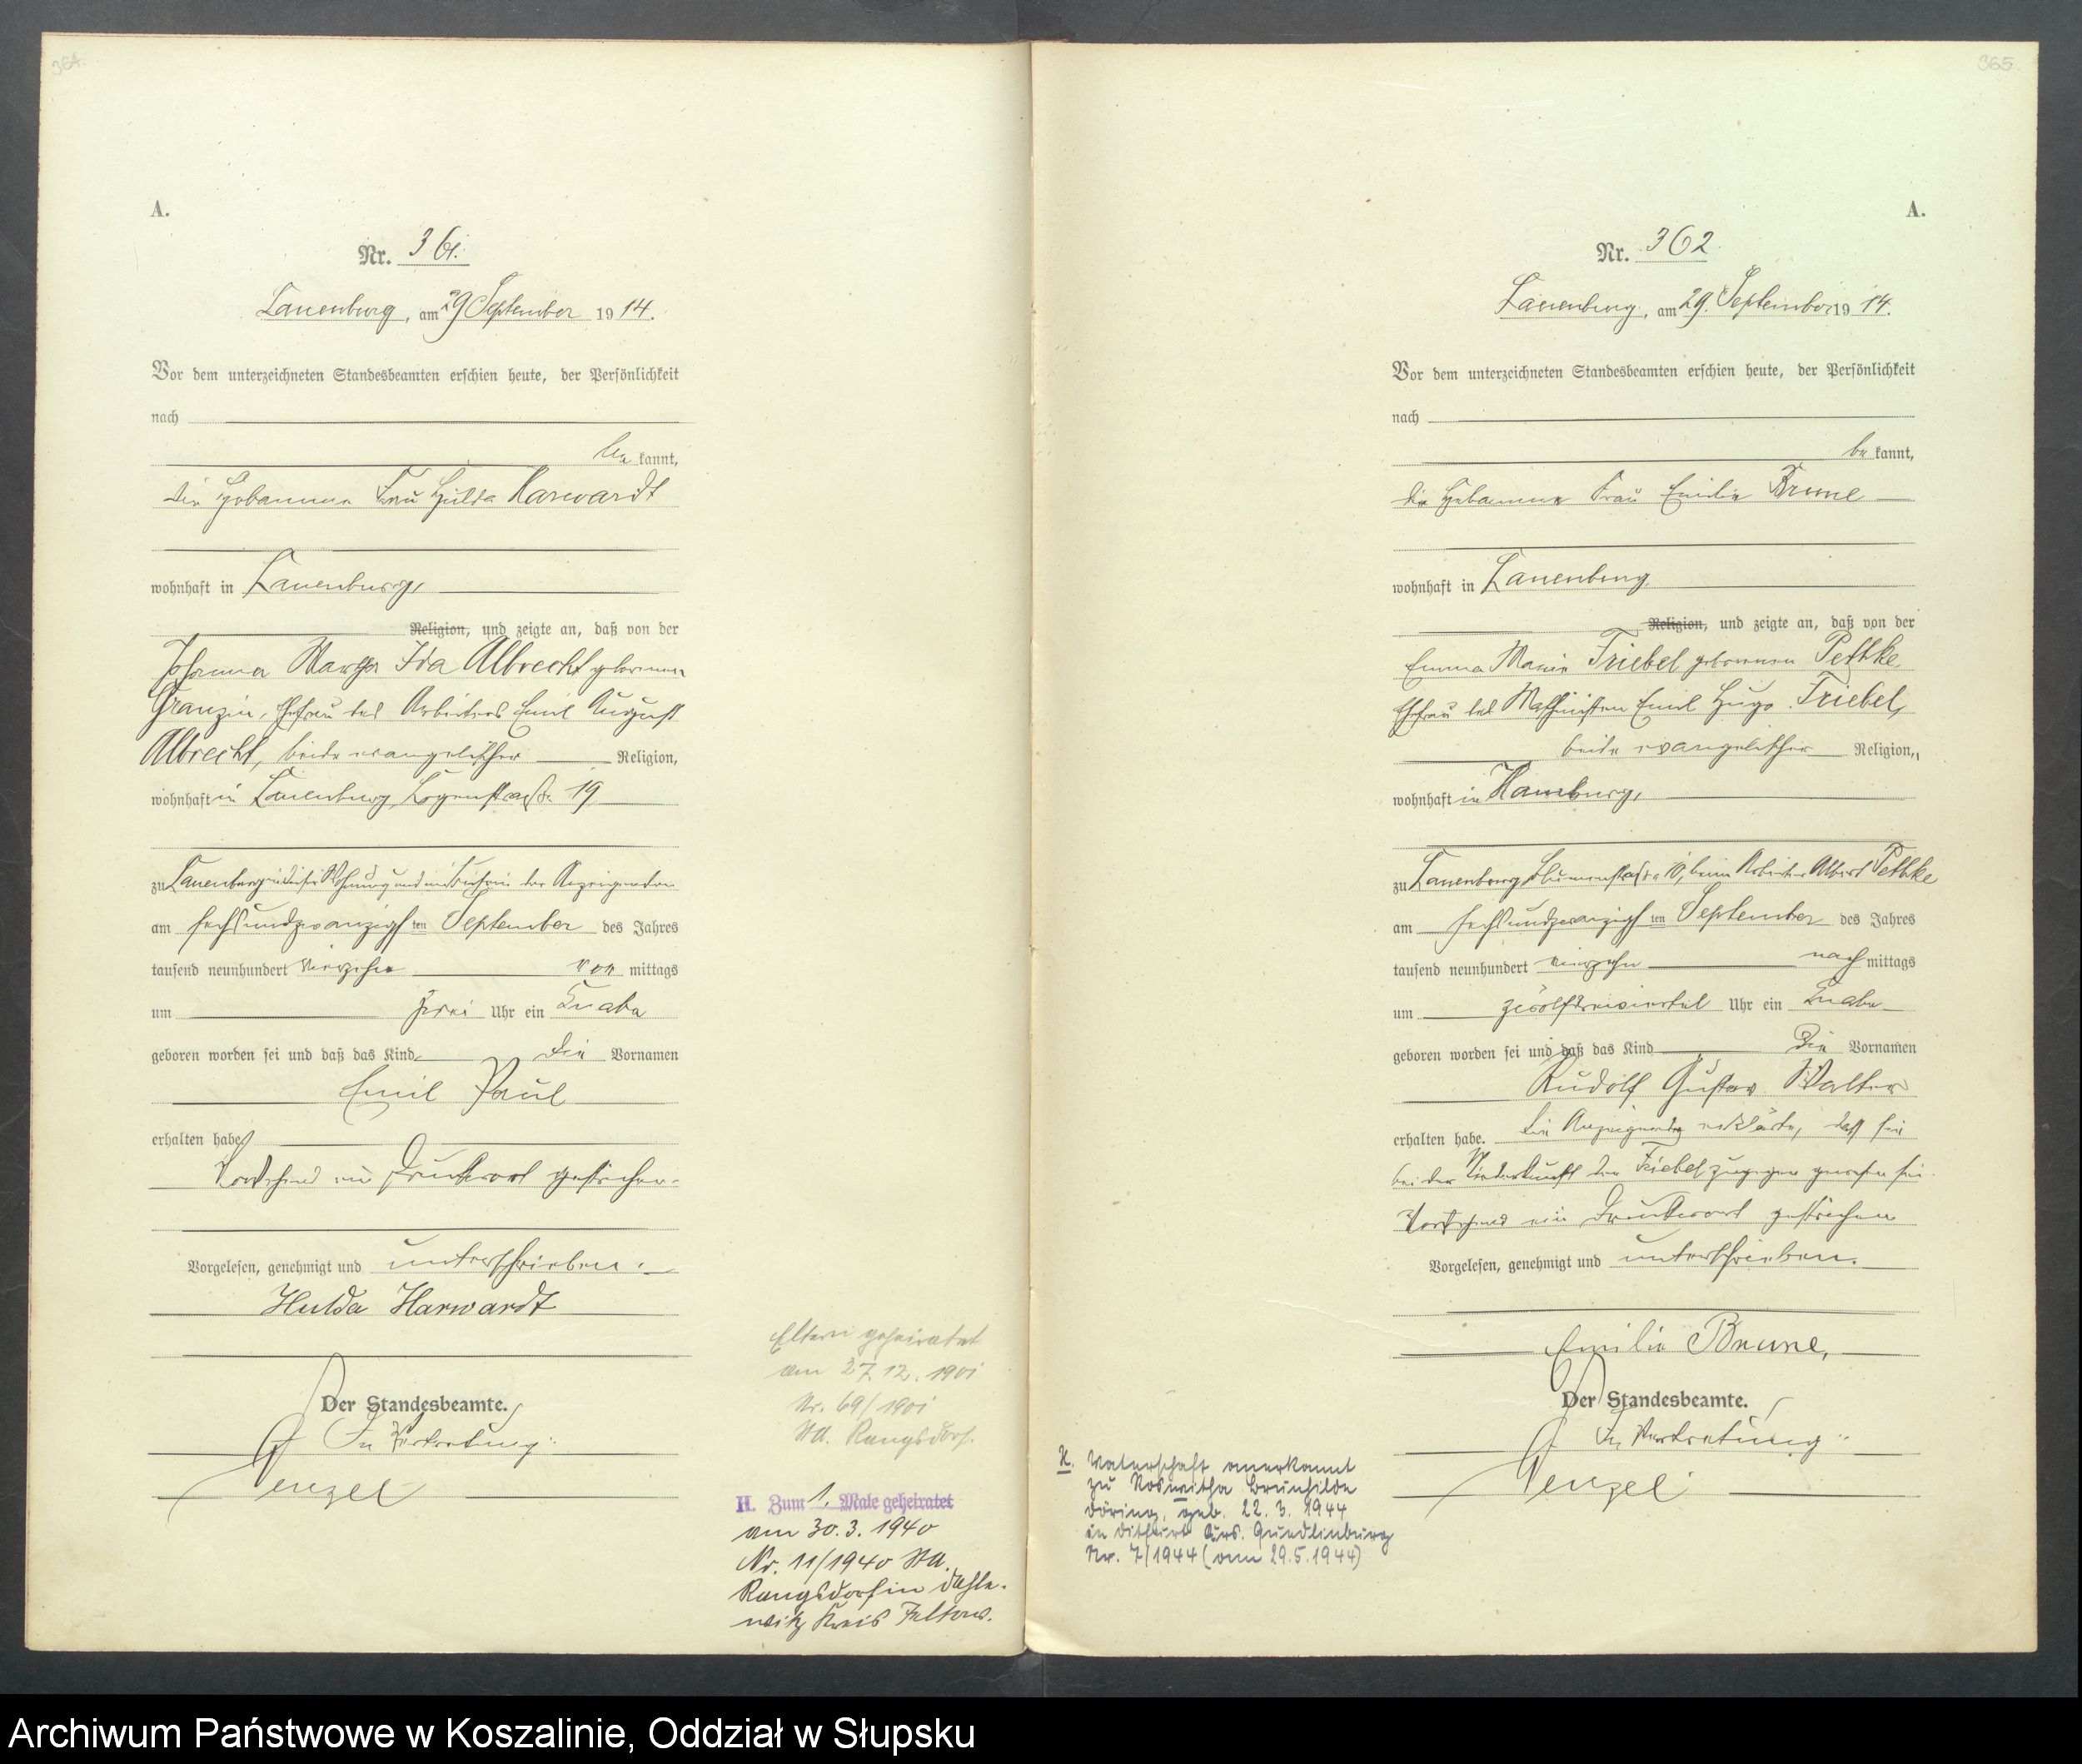 364.
A.
Nr. 361.
Lauenburg, am 29 September 1914.
Vor dem unterzeichneten Standesbeamten erschien heute, der Persönlichkeit
nach
be kannt,
die Hebamme Frau Hulda Harwardt
wohnhaft in Lauenburg,
Religion, und zeigte an, daß von der
Johanna Ida Albrecht geborenen
Granzin, Ehefrau des Arbeiters Emil August
Albrecht, beide evangelischer Religion,
wohnhaft in Lauenburg, Logenstraße 19
zu Lauenburg in dieser Wohnung und im Beisein der Anzeigenden
am sechsundzwanzigsten September des Jahres
tausend neunhundert vierzehn vor mittags
um Uhr ein Knabe
geboren worden sei und daß das Kind die Vornamen
Emil Paul
erhalten habe
Vorstehend ein Druckwort gestrichen.
Vorgelesen, genehmigt und unterschrieben.
Hulda Harwardt
Der Standesbeamte.
In Vertretung:
Wenzel
Eltern geheiratet
am 27.12.1901
Nr. 69/1901
StA. Rangsdorf.
H. Zum 1. Male geheiratet
am 30.3.1940
Nr. 11/1940 StA.
Rangsdorf in Dahle-
witz Kreis Teltow.
365.
A.
Nr. 362
Lauenburg, am 29. September 1914.
Vor dem unterzeichneten Standesbeamten erschien heute, der Persönlichkeit
nach
be kannt,
die Hebamme Frau Emilie Brune
wohnhaft in Lauenburg
Religion, und zeigte an, daß von der
Emma Marie Triebel geborenen Pethke
Ehefrau des Maschinisten Emil Hugo Triebel,
beide evangelischer Religion,
wohnhaft in Hamburg,
zu Lauenburg Blumenstraße 10, beim Arbeiter Albert Pethke
am sechsundzwanzigsten September des Jahres
tausend neunhundert vierzehn nach mittags
um zwölfdreiviertel Uhr ein Knabe
geboren worden sei und daß das Kind die Vornamen
Rudolf Gustav Walter
erhalten habe. Die Anzeigende erklärte, daß sie
bei der Niederkunft der Triebel zugegen gewesen sei.
Vorstehend ein Druckwort gestrichen
Vorgelesen, genehmigt und unterschrieben.
Emilie Brune,
Der Standesbeamte.
In Vertretung:
Wenzel
V. Vaterschaft anerkannt
zu Roswitha Brunhilde
Döring, geb. 22.3.1944
in Ditfurt Krs. Quedlinburg
Nr. 7/1944 (vom 29.5.1944)
Archiwum Państwowe w Koszalinie, Oddział w Słupsku